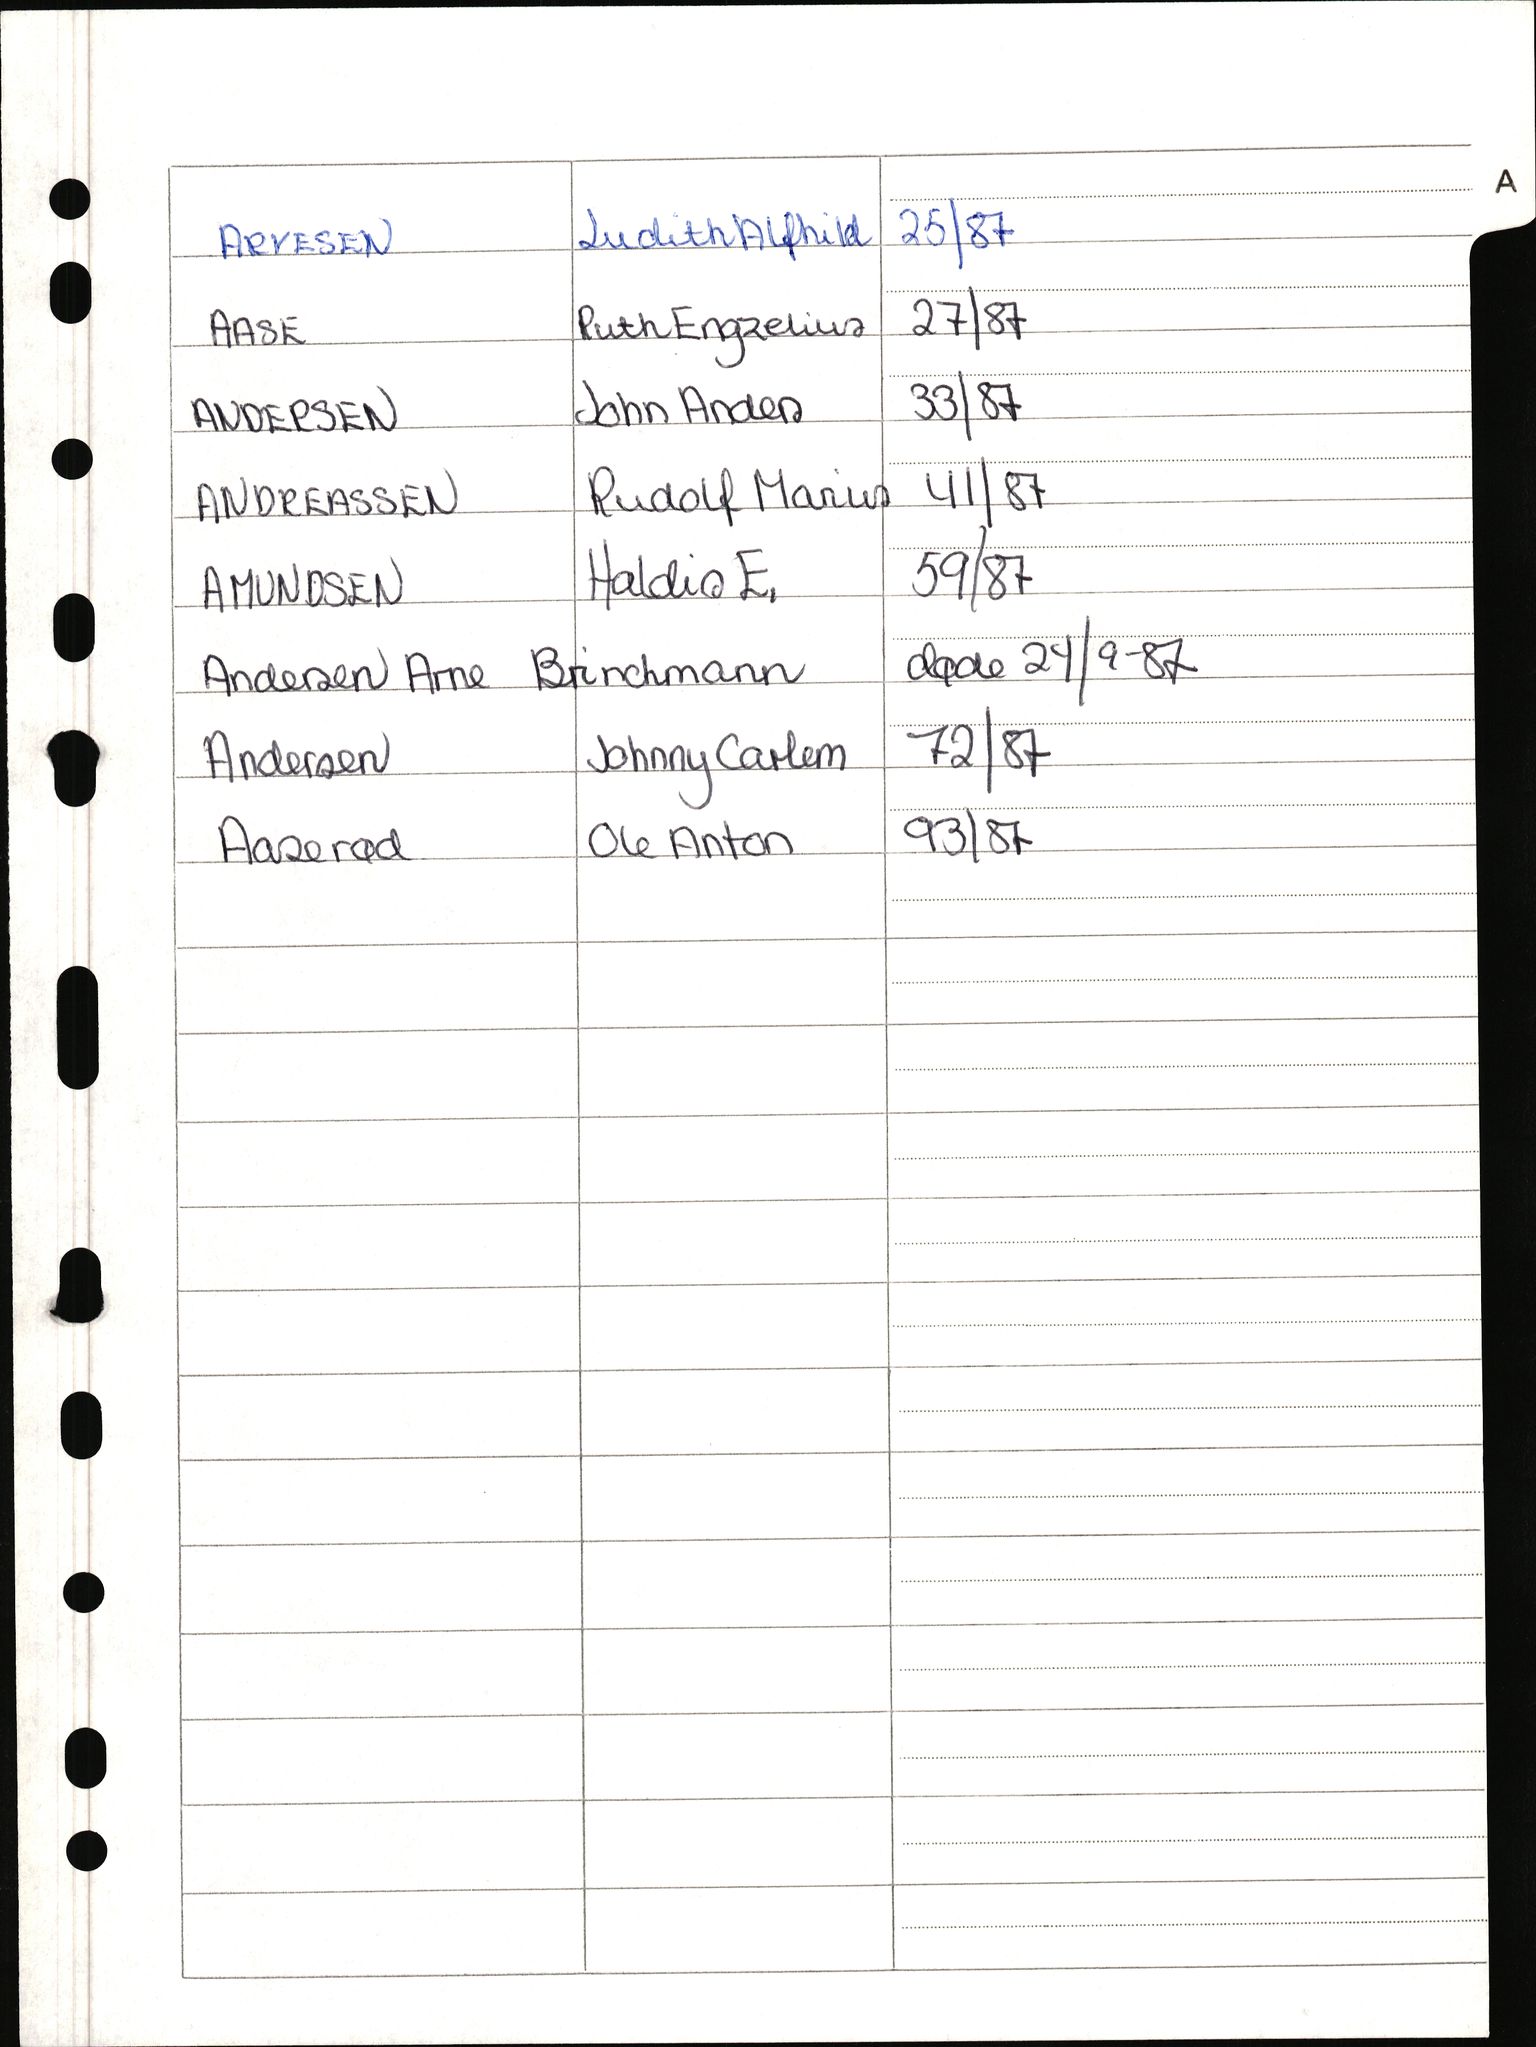 A
ARVESEN Judith Alfhild 25/87
AASE Ruth Engzelius 27/87
ANDERSEN John Anders 33/87
ANDREASSEN Rudolf Marius 41/87
AMUNDSEN Haldis E. 59/87
Andersen Arne Brinchmann døde 24/9-87
Andersen Johnny Carlem 72/87
Aaserød Ole Anton 93/87